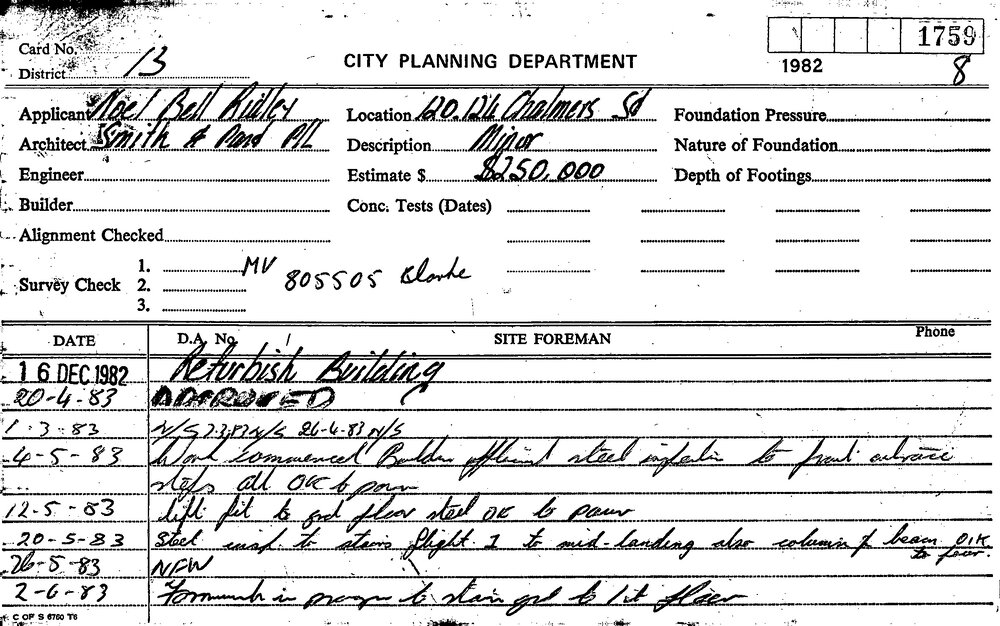 Card No.
District 13
CITY PLANNING DEPARTMENT
1759
1982 8
Applicant Noel Bell Ridley
Location 120.124 Chalmers St
Foundation Pressure
Architect Smith & P/L
Description Minor
Nature of Foundation
Engineer
Estimate $ $250,000
Depth of Footings
Builder
Conc. Tests (Dates)
Alignment Checked
Survey Check 1. MV
2. 805505
3.
DATE D.A. No. / SITE FOREMAN Phone
16 DEC 1982 Refurbish Building
20-4-83 APPROVED
1.3.83 N/S 7.3.83 N/S 26-4-83 N/S
4-5-83 Work commenced Builder steel to front entrance
steps all OK to pour
12-5-83 lift pit to grd floor steel OK to pour
20-5-83 Steel insp to stairs flight 1 to mid-landing also column & beam O/K
to pour.
26-5-83 NFW
2-6-83 Formwork in progress to stair grd to 1st floor
C OF S 6760 T6